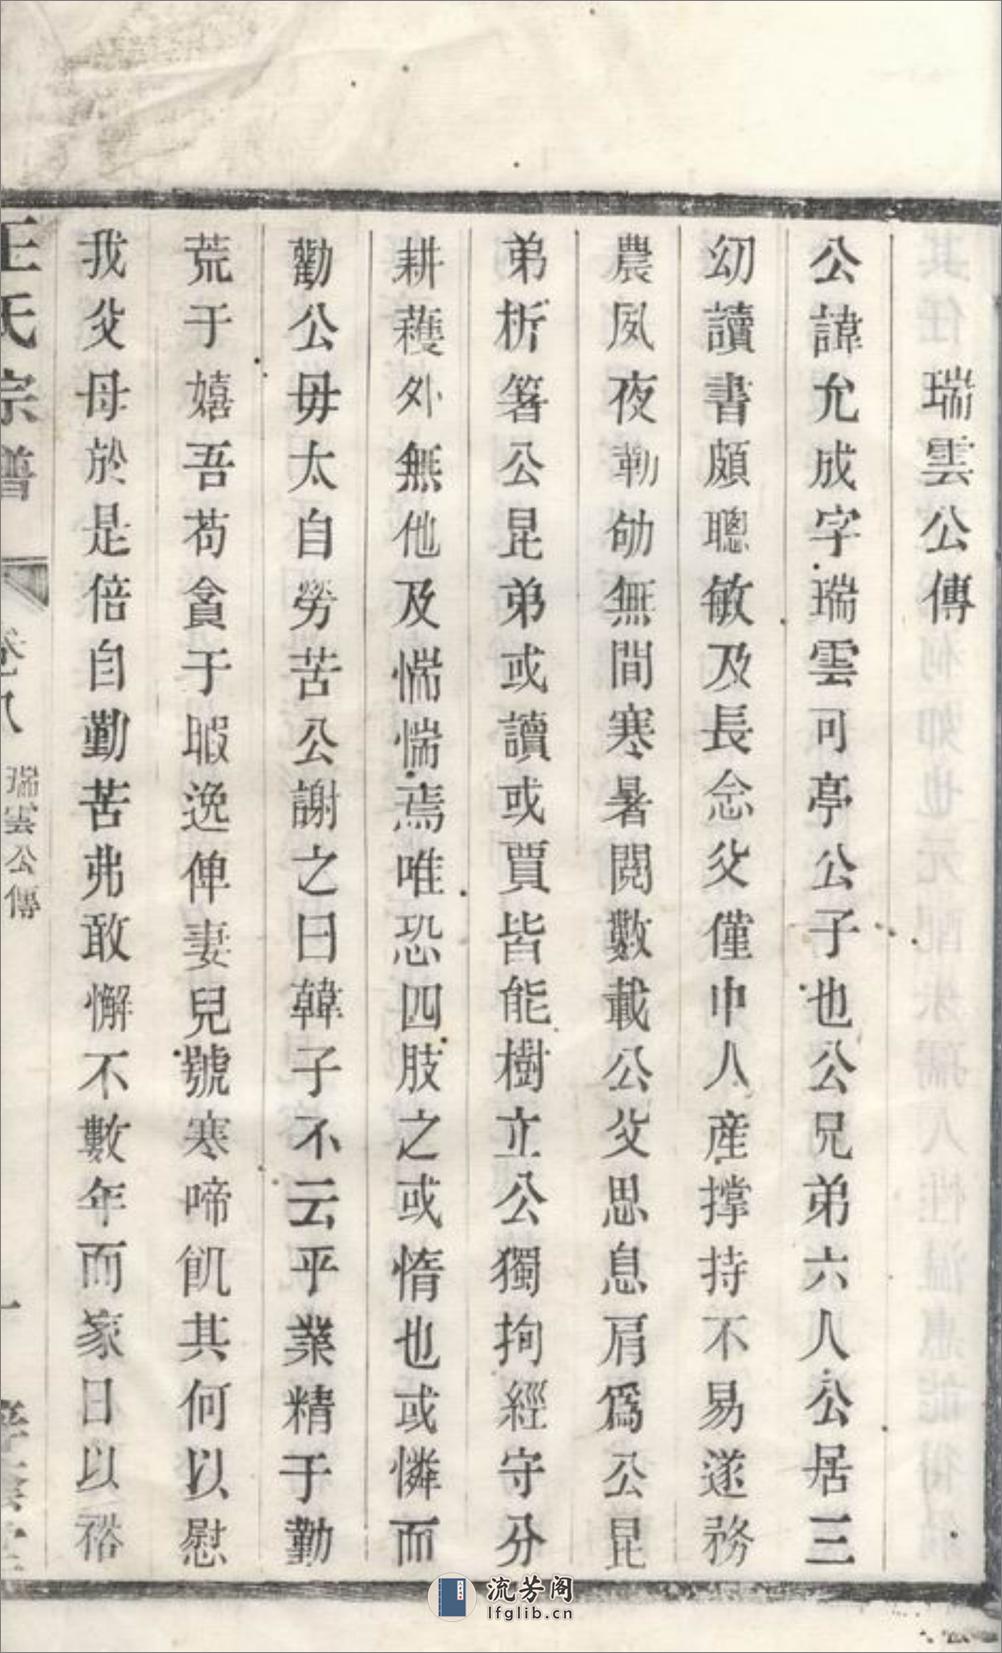 瑞雲公傳
公諱允成字瑞雲可亭公子也公兄弟六人公居三
幼讀書頗聰敏及長念父僅中人產撑持不易遂務
農夙夜勤劬無間寒暑閱數載公父思息肩爲公昆
弟析箸公昆弟或讀或賈皆能樹立公獨拘經守分
耕穫外無他及惴惴焉唯恐四肢之或惰也或憐而
勸公毋太自勞苦公謝之曰韓子不云乎業精于勤
荒于嬉吾苟貪于暇逸俾妻兒號寒啼飢其何以慰
我父母於是倍自勤苦弗敢懈不數年而家日以裕
王氏宗譜
卷八
瑞雲公傳
一
流芳阁
lfglib.cn